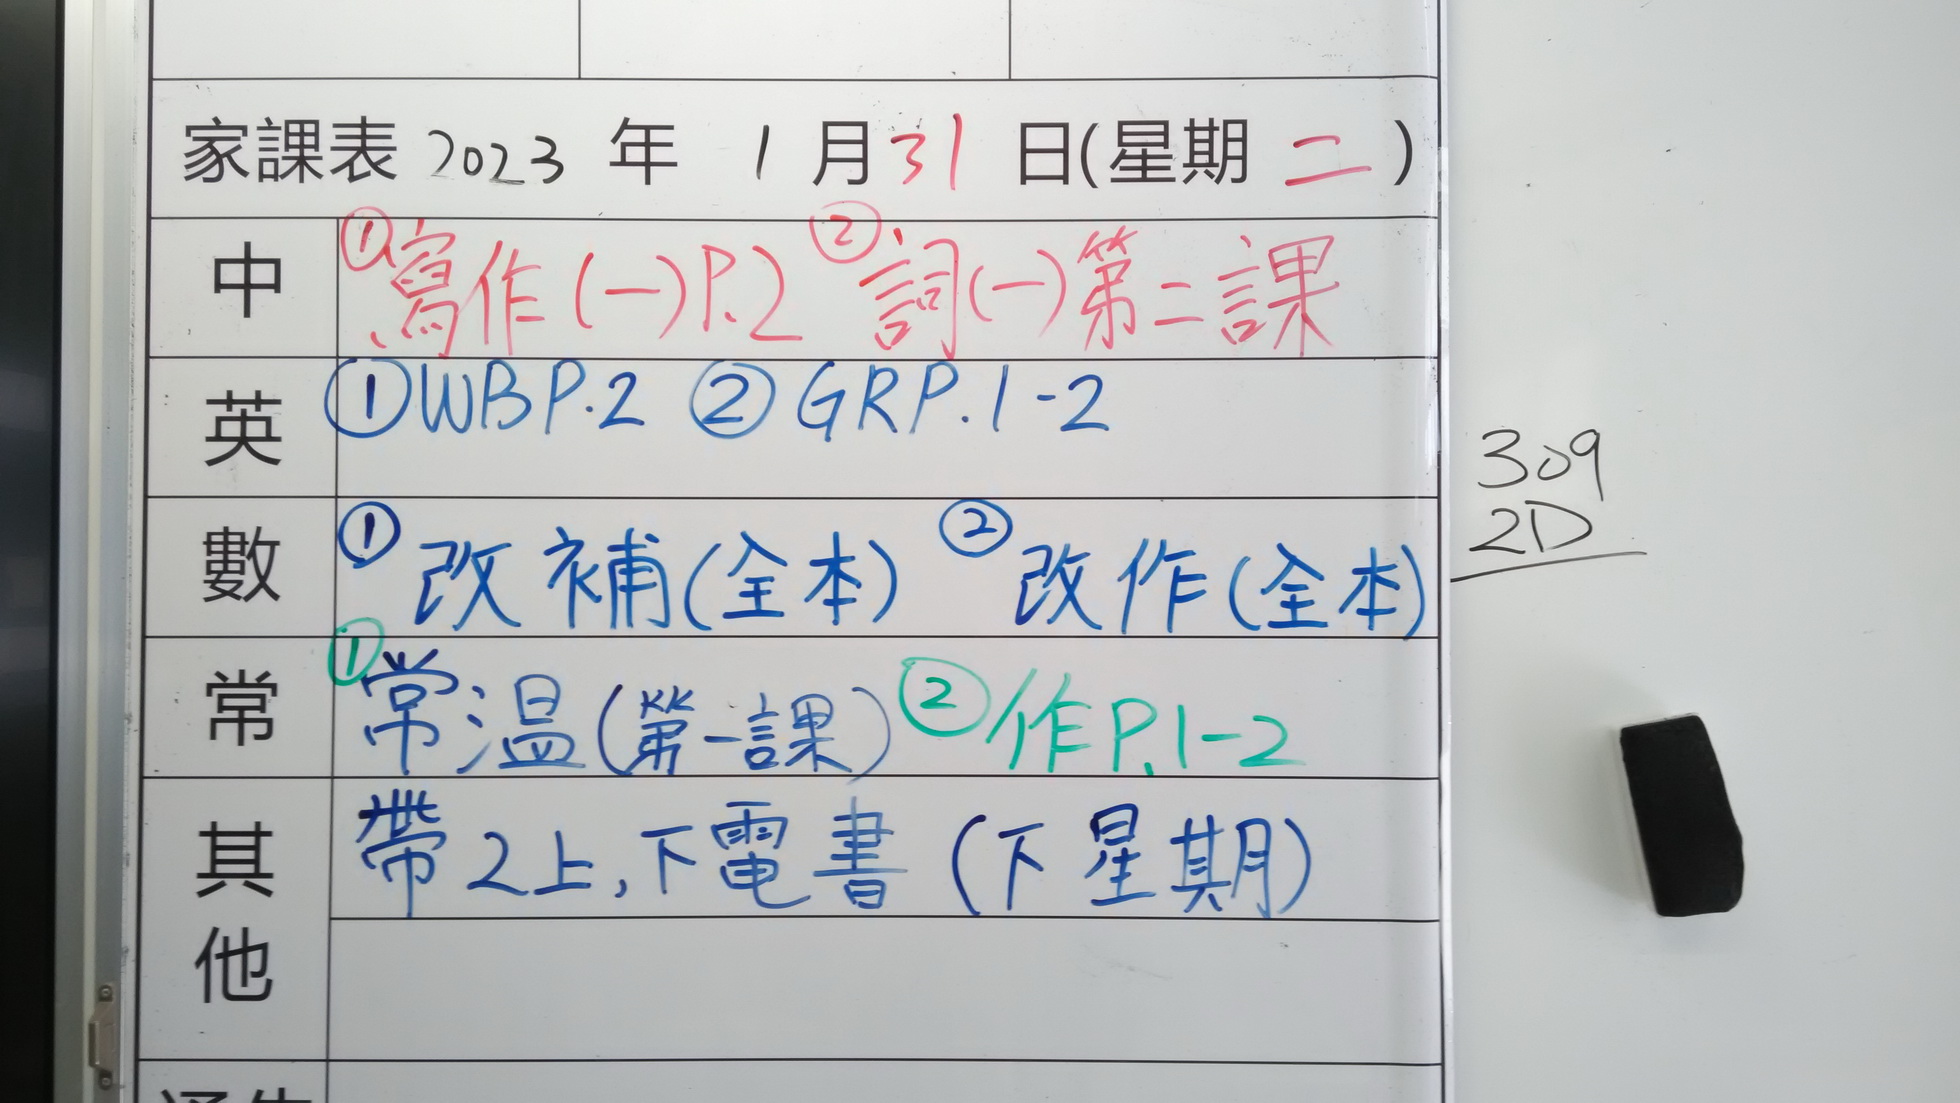 家課表 2023 年 1 月 31 日(星期 二 )
中 ①寫作(一)P.2 ②詞(一)第二課
英 ①WBP.2 ②GRP.1-2
數 ①改補(全本) ②改作(全本)
常 ①常温(第一課) ②作P.1-2
其他 帶2上,下電書(下星期)
309
2D